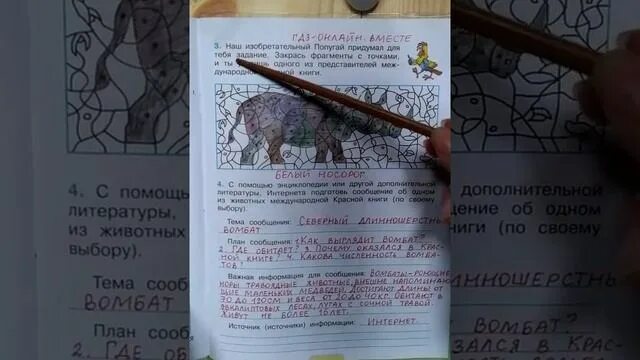 ГДЗ-ОНЛАЙН. ВМЕСТЕ
3. Наш изобретательный Попугай придумал для
тебя задание. Закрась фрагменты с точками,
и ты одного из представителей меж-
дународной книги.
БЕЛЫЙ НОСОРОГ
4. С помощью энциклопедии или другой дополнительной
литературы, Интернета подготовь сообщение об одном
из животных международной Красной книги (по своему
выбору).
Тема сообщения: СЕВЕРНЫЙ ДЛИННОШЕРСТНЫЙ
ВОМБАТ
План сообщения: 1. КАК ВЫГЛЯДИТ ВОМБАТ?
2. ГДЕ ОБИТАЕТ? 3. ПОЧЕМУ ОКАЗАЛСЯ В КРАС-
НОЙ КНИГЕ? 4. КАКОВА ЧИСЛЕННОСТЬ ВОМБА-
ТОВ?
Важная информация для сообщения: ВОМБАТЫ-РОЮЩИЕ
НОРЫ ТРАВОЯДНЫЕ ЖИВОТНЫЕ, ВНЕШНЕ НАПОМИНАЮ-
ЩИЕ МАЛЕНЬКИХ МЕДВЕДЕЙ. ДОСТИГАЮТ ДЛИНЫ ОТ
70 ДО 120СМ И ВЕСА ОТ 20 ДО 40 КГ. ОБИТАЮТ В
ЭВКАЛИПТОВЫХ ЛЕСАХ, ЛУГАХ С СОЧНОЙ ТРАВОЙ.
ЖИВУТ НЕ БОЛЕЕ 10 ЛЕТ.
Источник (источники) информации: ИНТЕРНЕТ.
4. С помощь
литературы,
из животных
выбору).
Тема сооб
ВОМБАТ
План сооб
2. ГДЕ ОБИТ
дополнительной
ение об одном
ги (по своему
ННОШЕРСТН
ВОМБАТ?
ЗАЛСЯ В КРАС